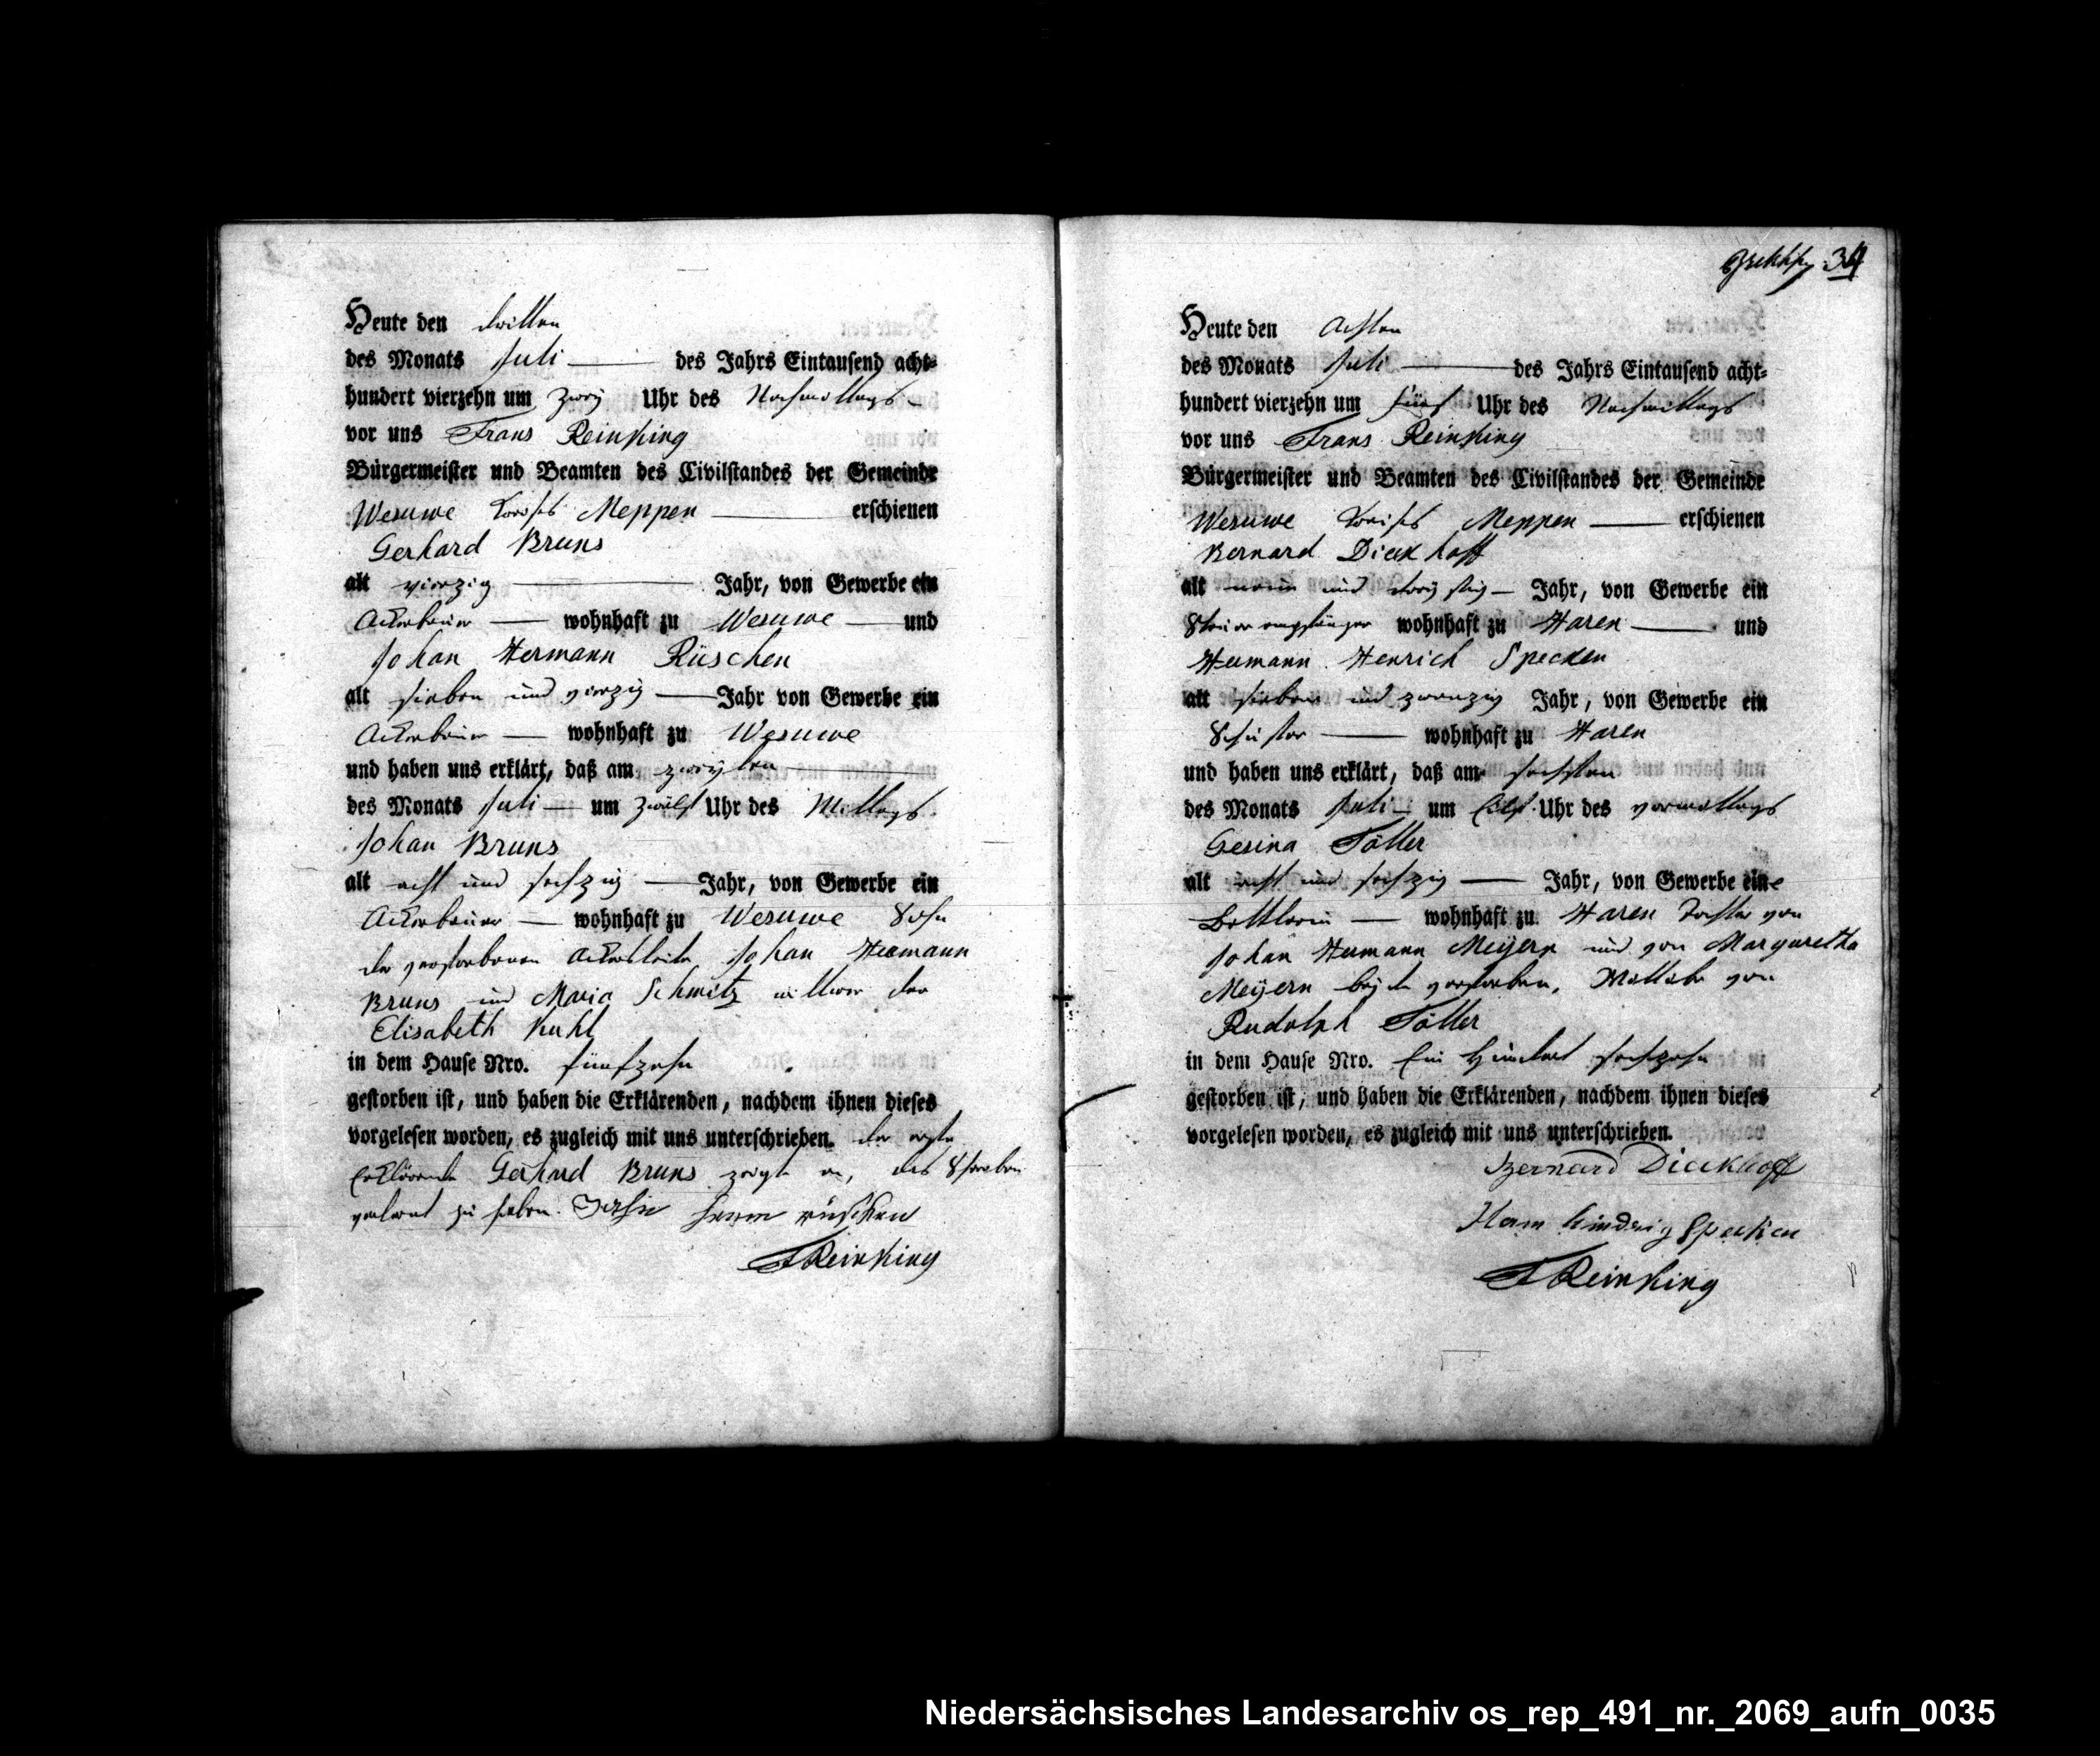 Heute den dritten
des Monats Juli des Jahrs Eintausend acht-
hundert vierzehn um zwey Uhr des Nachmittags
vor uns Frans Reinking
Bürgermeister und Beamten des Civilstandes der Gemeinde
Wesuwe Kreises Meppen erschienen
Gerhard Bruns
alt vierzig Jahr, von Gewerbe ein
Ackerbauer wohnhaft zu Wesuwe und
Johan Hermann Rüschen
alt sieben und vierzig Jahr von Gewerbe ein
Ackerbauer wohnhaft zu Wesuwe
und haben uns erklärt, daß am zweyten
des Monats Juli um zwölf Uhr des Mittags
Johan Bruns
alt acht und sechzig Jahr, von Gewerbe ein
Ackerbauer wohnhaft zu Wesuwe Sohn
der verstorbenen Ackersleute Johan Hermann
Bruns und Maria Schmitz wittwer der
Elisabeth Kuhl
in dem Hause Nro. fünfzehn
gestorben ist, und haben die Erklärenden, nachdem ihnen dieses
vorgelesen worden, es zugleich mit uns unterschrieben. der erste
Erklärende Gerhard Bruns zeigte an, das Schreiben
gelernt zu haben. Herm rüschen
FReinking
34
Heute den Achten
des Monats Juli des Jahrs Eintausend acht-
hundert vierzehn um fünf Uhr des Nachmittags
vor uns Frans Reinking
Bürgermeister und Beamten des Civilstandes der Gemeinde
Wesuwe Kreises Meppen erschienen
Bernard Dieckhoff
alt neun und dreyssig Jahr, von Gewerbe ein
Steuerempfänger wohnhaft zu Haren und
Hermann Henrich Specken
alt sieben und zwanzig Jahr, von Gewerbe ein
Schuster wohnhaft zu Haren
und haben uns erklärt, daß am sechsten
des Monats Juli um Eilf Uhr des vormittags
Gesina Töller
alt acht und sechzig Jahr, von Gewerbe eine
Bettlerin wohnhaft zu Haren Tochter von
Johan Hermann Meyern und von Margaretha
Meyern beyde verstorben, Wittwe von
Rudolph Töller
in dem Hause Nro. Ein Hundert sechzehn
gestorben ist, und haben die Erklärenden, nachdem ihnen dieses
vorgelesen worden, es zugleich mit uns unterschrieben.
Bernard Dieckhoff
Herm hindrig Specken
FReinking
Niedersächsisches Landesarchiv os_rep_491_nr._2069_aufn_0035